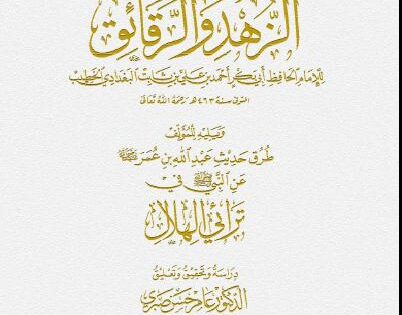 الزُّهْدُ وَالرَّقَائِقُ
لِلإِمَامِ الحَافِظِ أَبِي بَكْرٍ أَحْمَدَ بْنِ عَلِيِّ بْنِ ثَابِتٍ البَغْدَادِيِّ الخَطِيبِ
المتوفى سنة ٤٦٣هـ رَحِمَهُ اللهُ تَعَالَى
وَيَلِيهِ لِلْمُؤَلِّفِ
طُرُقُ حَدِيثِ عَبْدِ اللهِ بْنِ عُمَرَ
عَنِ النَّبِيِّ ﷺ فِي
تَرَائِي الهِلَالِ
دِرَاسَةُ وَتَحْقِيقُ وَتَعْلِيقُ
الدكتور عامر حسن صبري